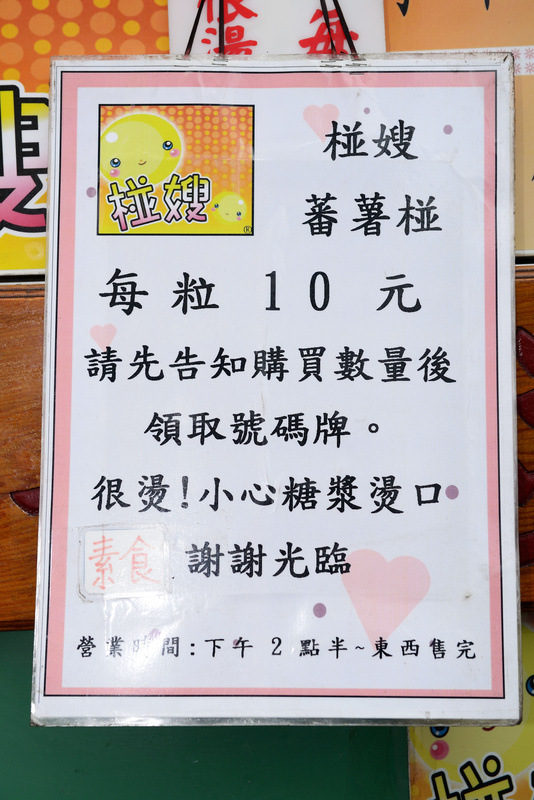 很燙
椪嫂
椪嫂
®
蕃薯椪
每粒 10 元
請先告知購買數量後
領取號碼牌。
很燙!小心糖漿燙口
素食
謝謝光臨
營業時間:下午 2 點半~東西售完